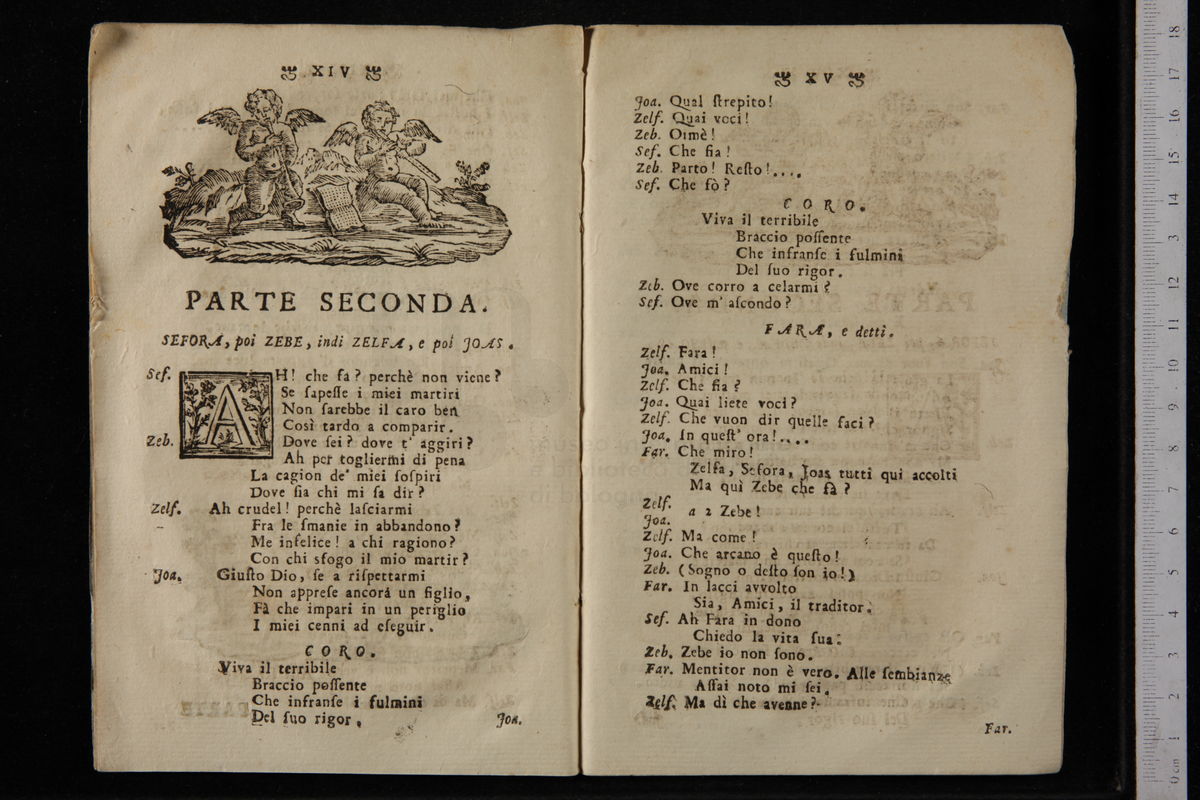 XIV
PARTE SECONDA.
SEFORA, poi ZEBE, indi ZELFA, e poi JOAS.
Sef. AH! che fa? perchè non viene?
Se ſapeſſe i miei martiri
Non ſarebbe il caro ben
Così tardo a comparir.
Zeb. Dove ſei? dove t' aggiri?
Ah per togliermi di pena
La cagion de' miei ſoſpiri
Dove ſia chi mi ſa dir?
Zelf. Ah crudel! perchè laſciarmi
Fra le ſmanie in abbandono?
Me infelice! a chi ragiono?
Con chi sfogo il mio martir?
Joa. Giuſto Dio, ſe a riſpettarmi
Non appreſe ancora un figlio,
Fà che impari in un periglio
I miei cenni ad eſeguir.
CORO.
Viva il terribile
Braccio poſſente
Che infranſe i fulmini
Del ſuo rigor.
Joa.
XV
Joa. Qual ſtrepito!
Zelf. Quai voci!
Zeb. Oimè!
Sef. Che ſia!
Zeb. Parto! Reſto!....
Sef. Che fò?
CORO.
Viva il terribile
Braccio poſſente
Che infranſe i fulmini
Del ſuo rigor.
Zeb. Ove corro a celarmi?
Sef. Ove m' aſcondo?
FARA, e detti.
Zelf. Fara!
Joa. Amici!
Zelf. Che ſia?
Joa. Quai liete voci?
Zelf. Che vuon dir quelle faci?
Joa. In queſt' ora!....
Far. Che miro!
Zelfa, Sefora, Joas tutti qui accolti
Ma quì Zebe che fà?
Zelf.
Joa. a 2 Zebe!
Zelf. Ma come!
Joa. Che arcano è queſto!
Zeb. (Sogno o deſto ſon io!)
Far. In lacci avvolto
Sia, Amici, il traditor.
Sef. Ah Fara in dono
Chiedo la vita ſua.
Zeb. Zebe io non ſono.
Far. Mentitor non è vero. Alle ſembianze
Aſſai noto mi ſei.
Zelf. Ma dì che avenne?
Far.
0 cm 1 2 3 4 5 6 7 8 9 10 11 12 13 14 15 16 17 18